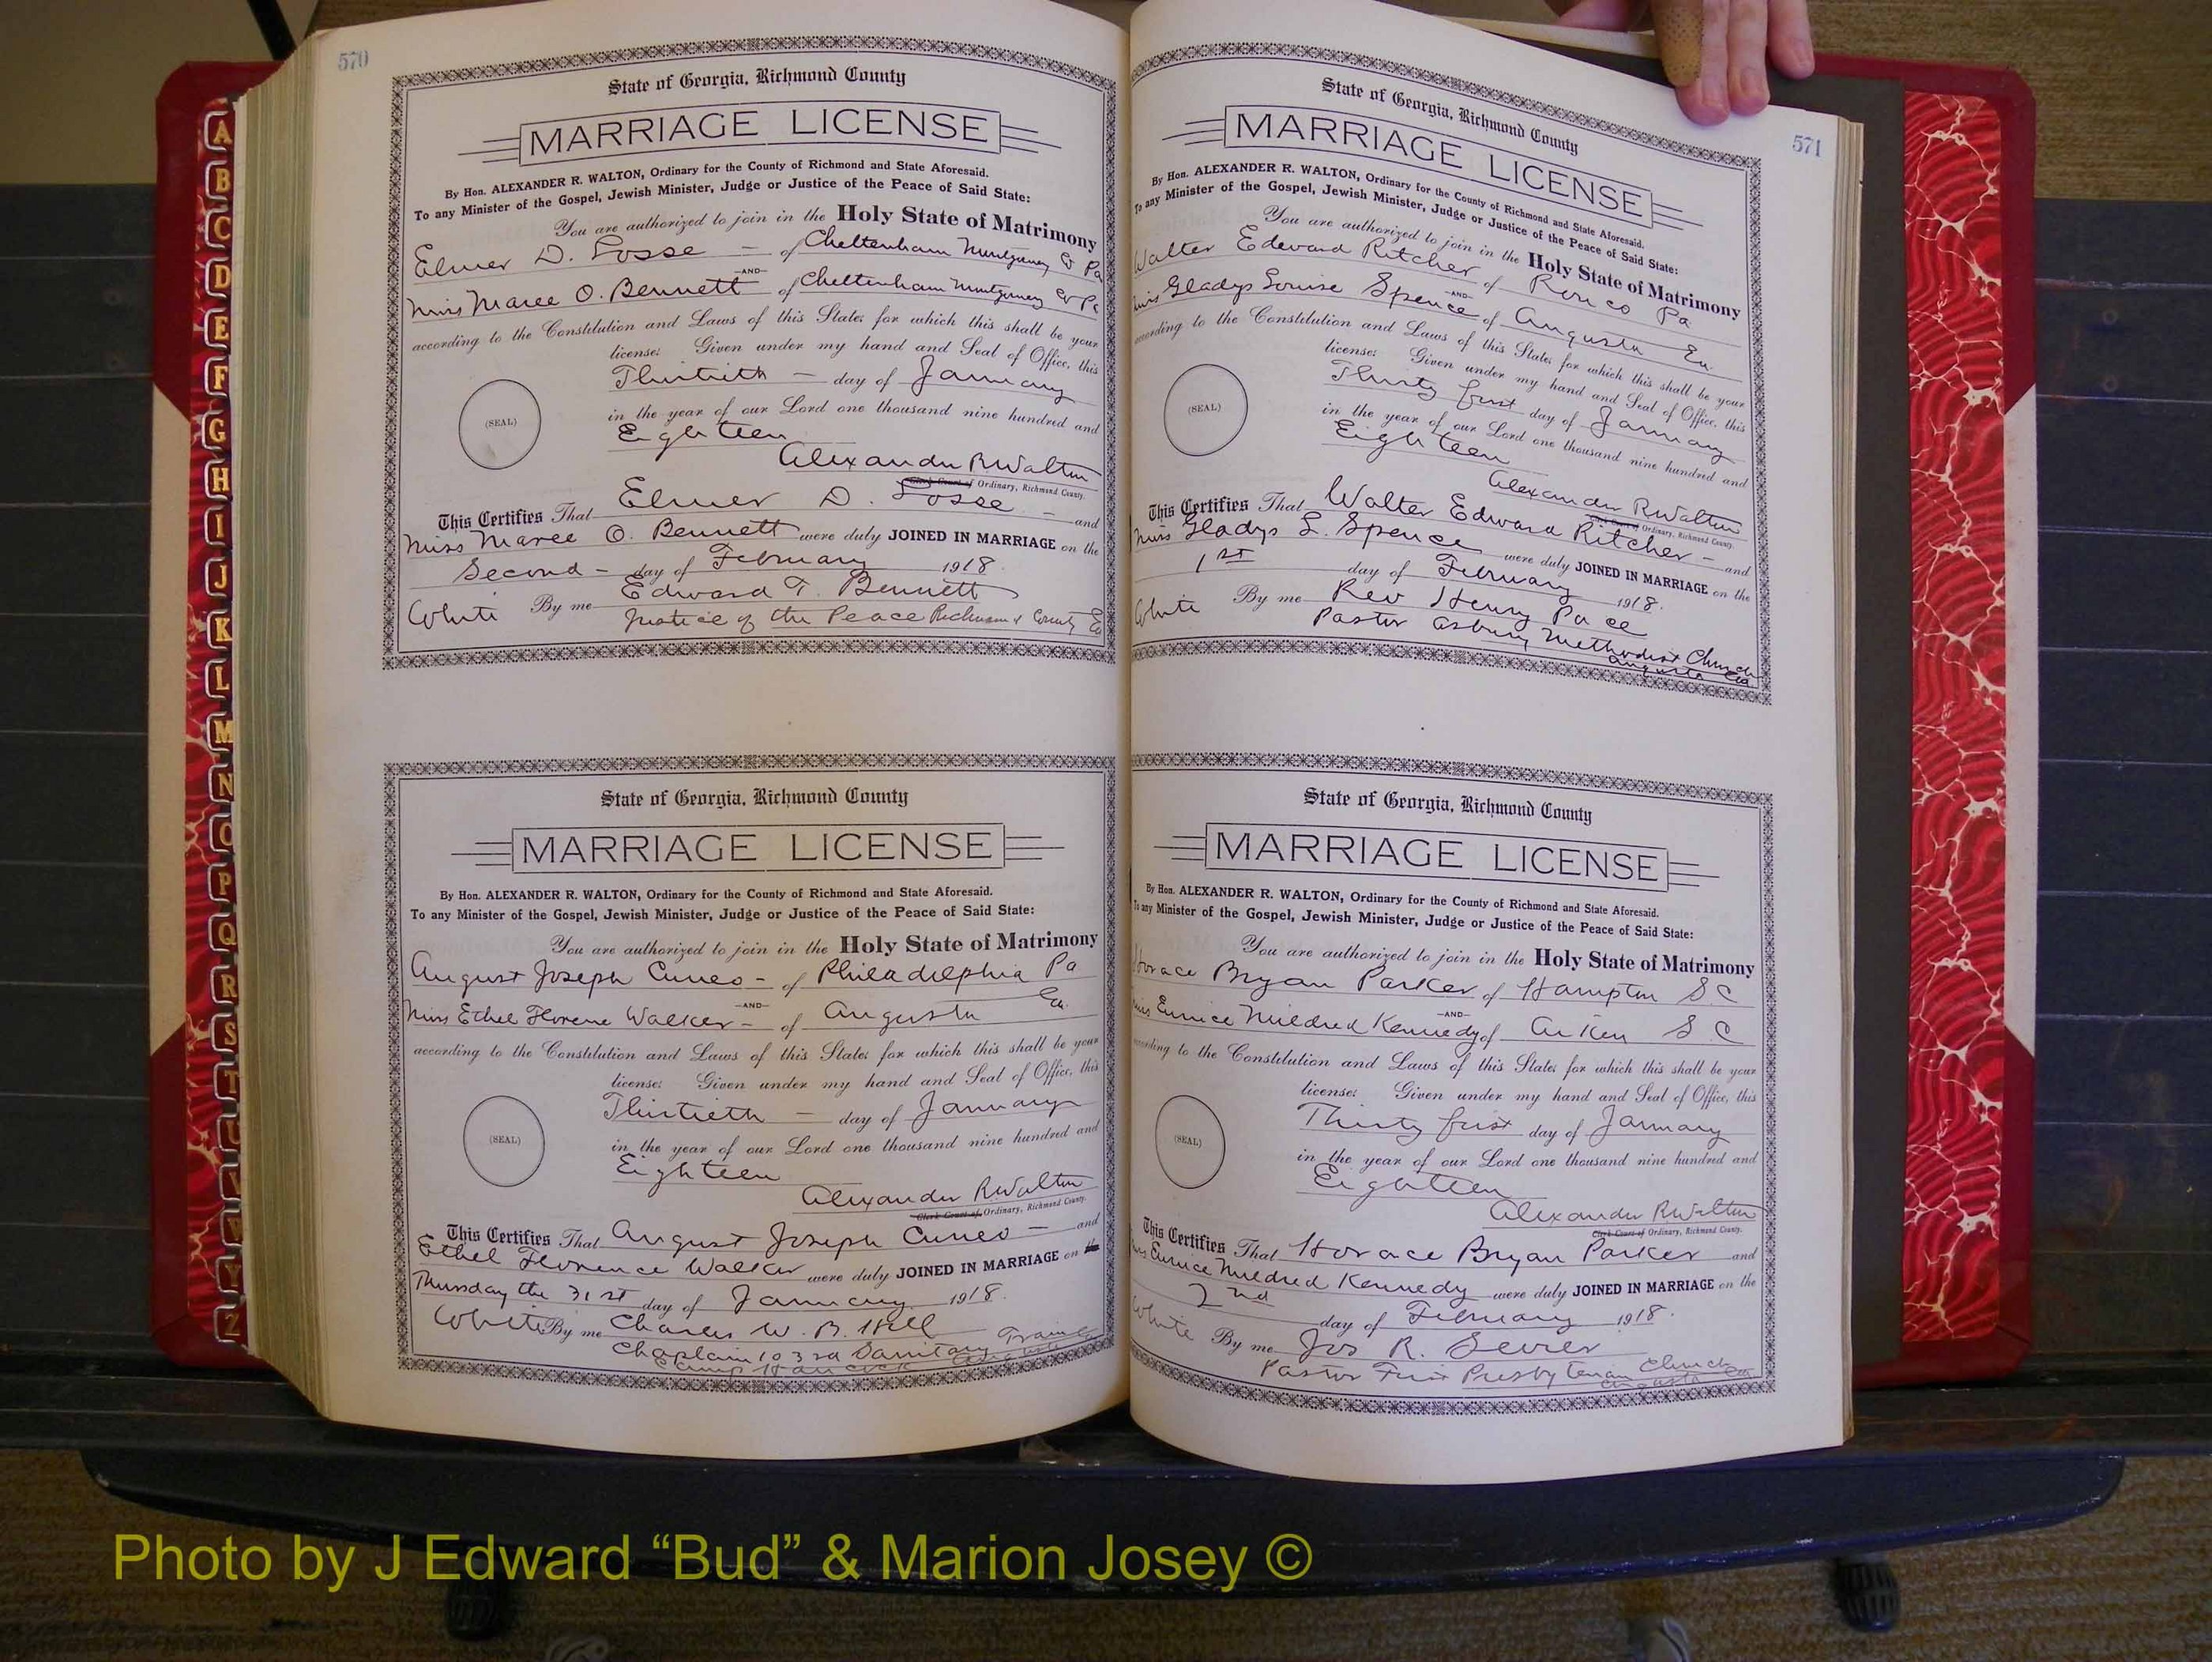 570
State of Georgia, Richmond County
MARRIAGE LICENSE
By Hon. ALEXANDER R. WALTON, Ordinary for the County of Richmond and State Aforesaid.
To any Minister of the Gospel, Jewish Minister, Judge or Justice of the Peace of Said State:
You are authorized to join in the Holy State of Matrimony
Elmer D. Fosse - of Cheltenham Montgomery Co Pa
AND
Miss Maree O. Bennett of Cheltenham Montgomery Co Pa
according to the Constitution and Laws of this State; for which this shall be your
license: Given under my hand and Seal of Office, this
Thirtieth - day of January
in the year of our Lord one thousand nine hundred and
Eighteen
(SEAL)
Alexander R Walton
Clerk Court of Ordinary, Richmond County.
This Certifies That Elmer D. Fosse - and
Miss Maree O. Bennett were duly JOINED IN MARRIAGE on the
Second - day of February 1918.
White By me Edward T. Bennett
Justice of the Peace Richmond County Ga
State of Georgia, Richmond County
MARRIAGE LICENSE
By Hon. ALEXANDER R. WALTON, Ordinary for the County of Richmond and State Aforesaid.
To any Minister of the Gospel, Jewish Minister, Judge or Justice of the Peace of Said State:
You are authorized to join in the Holy State of Matrimony
August Joseph Cuneo - of Philadelphia Pa
AND
Miss Ethel Florence Walker - of Augusta Ga.
according to the Constitution and Laws of this State; for which this shall be your
license: Given under my hand and Seal of Office, this
Thirtieth - day of January
in the year of our Lord one thousand nine hundred and
Eighteen
(SEAL)
Alexander R Walton
Clerk Court of Ordinary, Richmond County.
This Certifies That August Joseph Cuneo - and
Ethel Florence Walker were duly JOINED IN MARRIAGE on the
Thursday the 31st day of January 1918.
White By me Charles W. B. Hill
Chaplain 103rd Sanitary Train
Camp Hancock Augusta
571
State of Georgia, Richmond County
MARRIAGE LICENSE
By Hon. ALEXANDER R. WALTON, Ordinary for the County of Richmond and State Aforesaid.
To any Minister of the Gospel, Jewish Minister, Judge or Justice of the Peace of Said State:
You are authorized to join in the Holy State of Matrimony
Walter Edward Ritcher of Pa
AND
Miss Gladys Louise Spence of Augusta Ga.
according to the Constitution and Laws of this State; for which this shall be your
license: Given under my hand and Seal of Office, this
Thirty first day of January
in the year of our Lord one thousand nine hundred and
Eighteen
(SEAL)
Alexander R Walton
Clerk Court of Ordinary, Richmond County.
This Certifies That Walter Edward Ritcher - and
Miss Gladys L. Spence were duly JOINED IN MARRIAGE on the
1st day of February 1918.
White By me Rev Henry Pace
Pastor Asbury Methodist Church
Augusta Ga
State of Georgia, Richmond County
MARRIAGE LICENSE
By Hon. ALEXANDER R. WALTON, Ordinary for the County of Richmond and State Aforesaid.
To any Minister of the Gospel, Jewish Minister, Judge or Justice of the Peace of Said State:
You are authorized to join in the Holy State of Matrimony
Horace Bryan Parker of Hampton S.C
AND
Miss Eunice Mildred Kennedy of Aiken S C
according to the Constitution and Laws of this State; for which this shall be your
license: Given under my hand and Seal of Office, this
Thirty first day of January
in the year of our Lord one thousand nine hundred and
Eighteen
(SEAL)
Alexander R Walton
Clerk Court of Ordinary, Richmond County.
This Certifies That Horace Bryan Parker and
Miss Eunice Mildred Kennedy were duly JOINED IN MARRIAGE on the
2nd day of February 1918.
White By me Jos R. Sevier
Pastor First Presbyterian Church
Augusta Ga
A
B
C
D
E
F
G
H
I
J
K
L
M
N
O
P
Q
R
S
T
U
V
W
Y
Z
Photo by J Edward “Bud” & Marion Josey ©